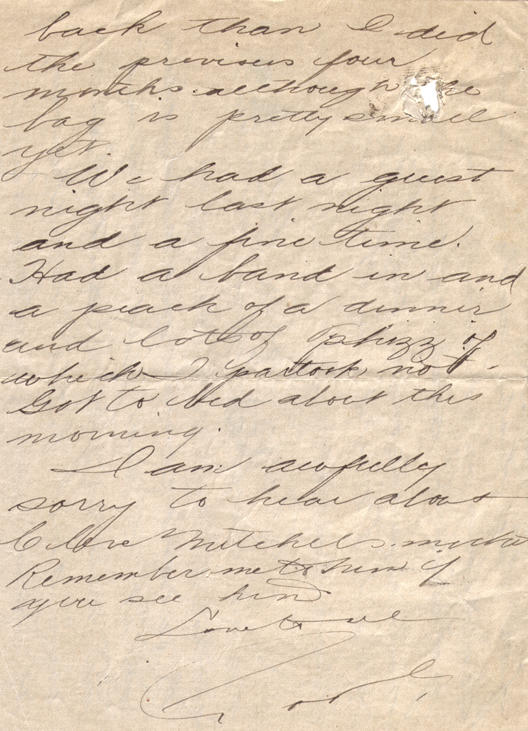 back than I did
the previous four
months although the
bag is pretty small
yet.
We had a guest
night last night
and a fine time.
Had a band in and
a peach of a dinner
and lots of phizz of
which I partook not.
Got to bed about this
morning.
I am awfully
sorry to hear about
Clare Mitchels
Remember me to him if
you see him
Love to all